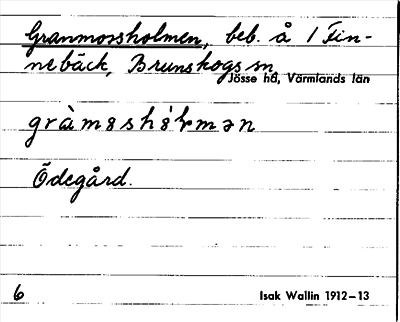 Granmossholmen, beb. å 1 Fin-
nebäck, Brunskogs sn
Jösse hd, Värmlands län
Ödegård.
6 Isak Wallin 1912–13